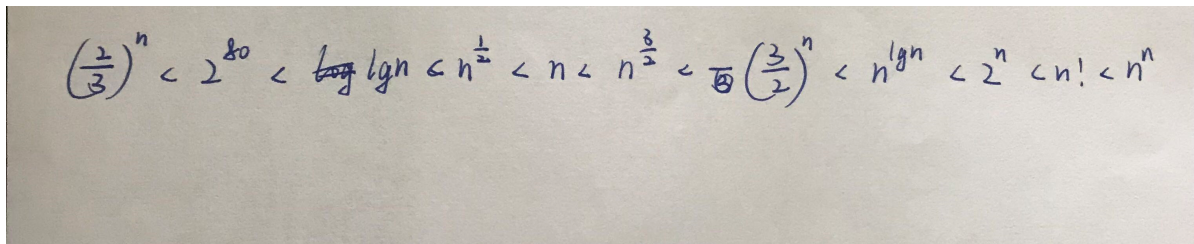 (2/3)^n < 2^80 < lgn < n^(1/2) < n < n^(3/2) < (3/2)^n < n^lgn < 2^n < n! < n^n